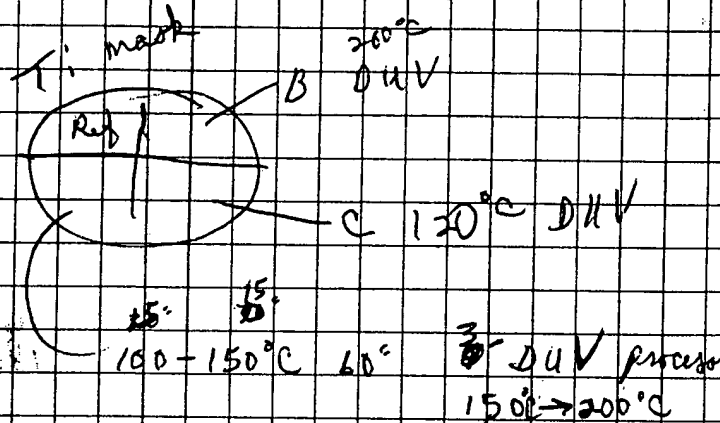 Ti mask
200°C
B DUV
Ref
C 120°C DUV
15
100 - 150°C 60" DUV process
150°C → 200°C